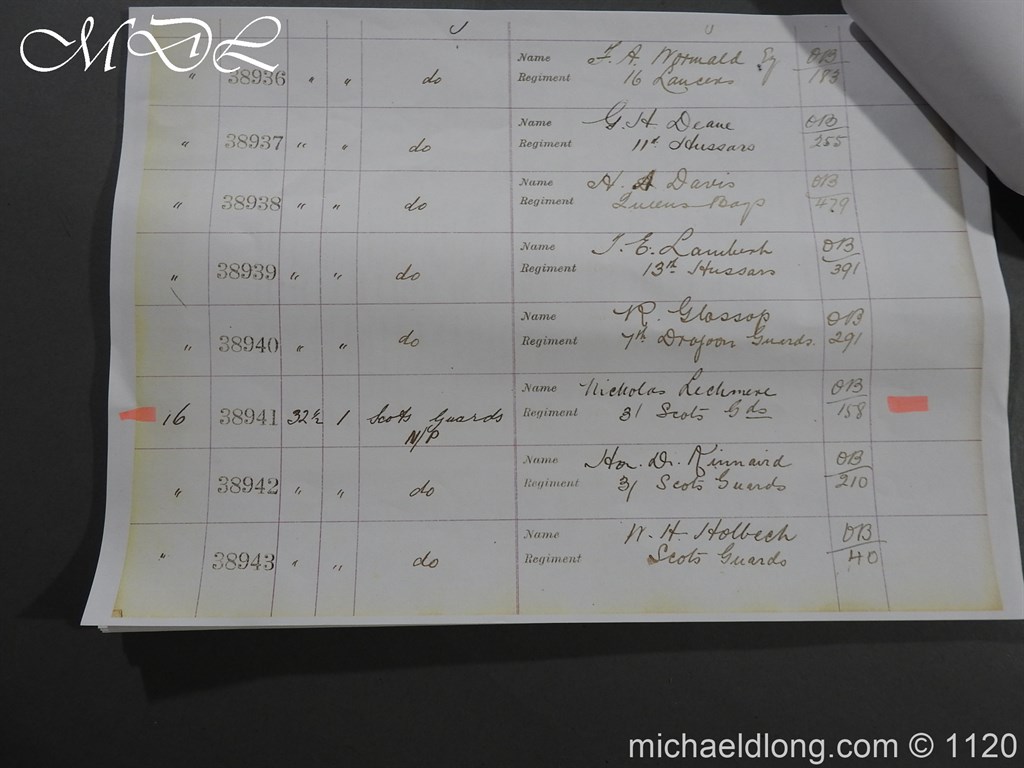 MDL
" 38936 " " do Name F. A. Wormald Esq OB
Regiment 16 Lancers 183
" 38937 " " do Name G. H. Deane OB
Regiment 11th Hussars 255
" 38938 " " do Name H. A Davis OB
Regiment Queens Bays 479
" 38939 " " do Name T. E. OB
Regiment 13th Hussars 391
" 38940 " " do Name R. Glossop OB
Regiment 7th Dragoon Guards. 291
16 38941 32½ 1 Scots Guards Name Nicholas Lechmere OB
N/P Regiment 3/ Scots Gds 158
" 38942 " " do Name Hon. Dr. Kinnaird OB
Regiment 3/ Scots Guards 210
" 38943 " " do Name W. H. Holbech OB
Regiment Scots Guards 40
michaeldlong.com © 1120